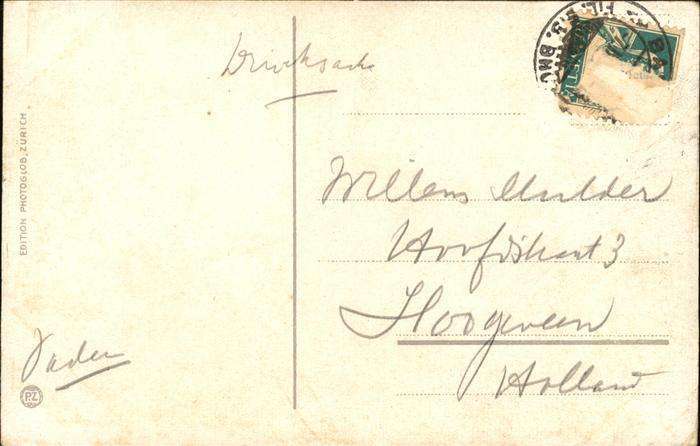 Drucksache
Willem Mulder
Hoofdstraat 3
Hoogeveen
Holland
Vader
EDITION PHOTOGLOB, ZÜRICH
P.Z.